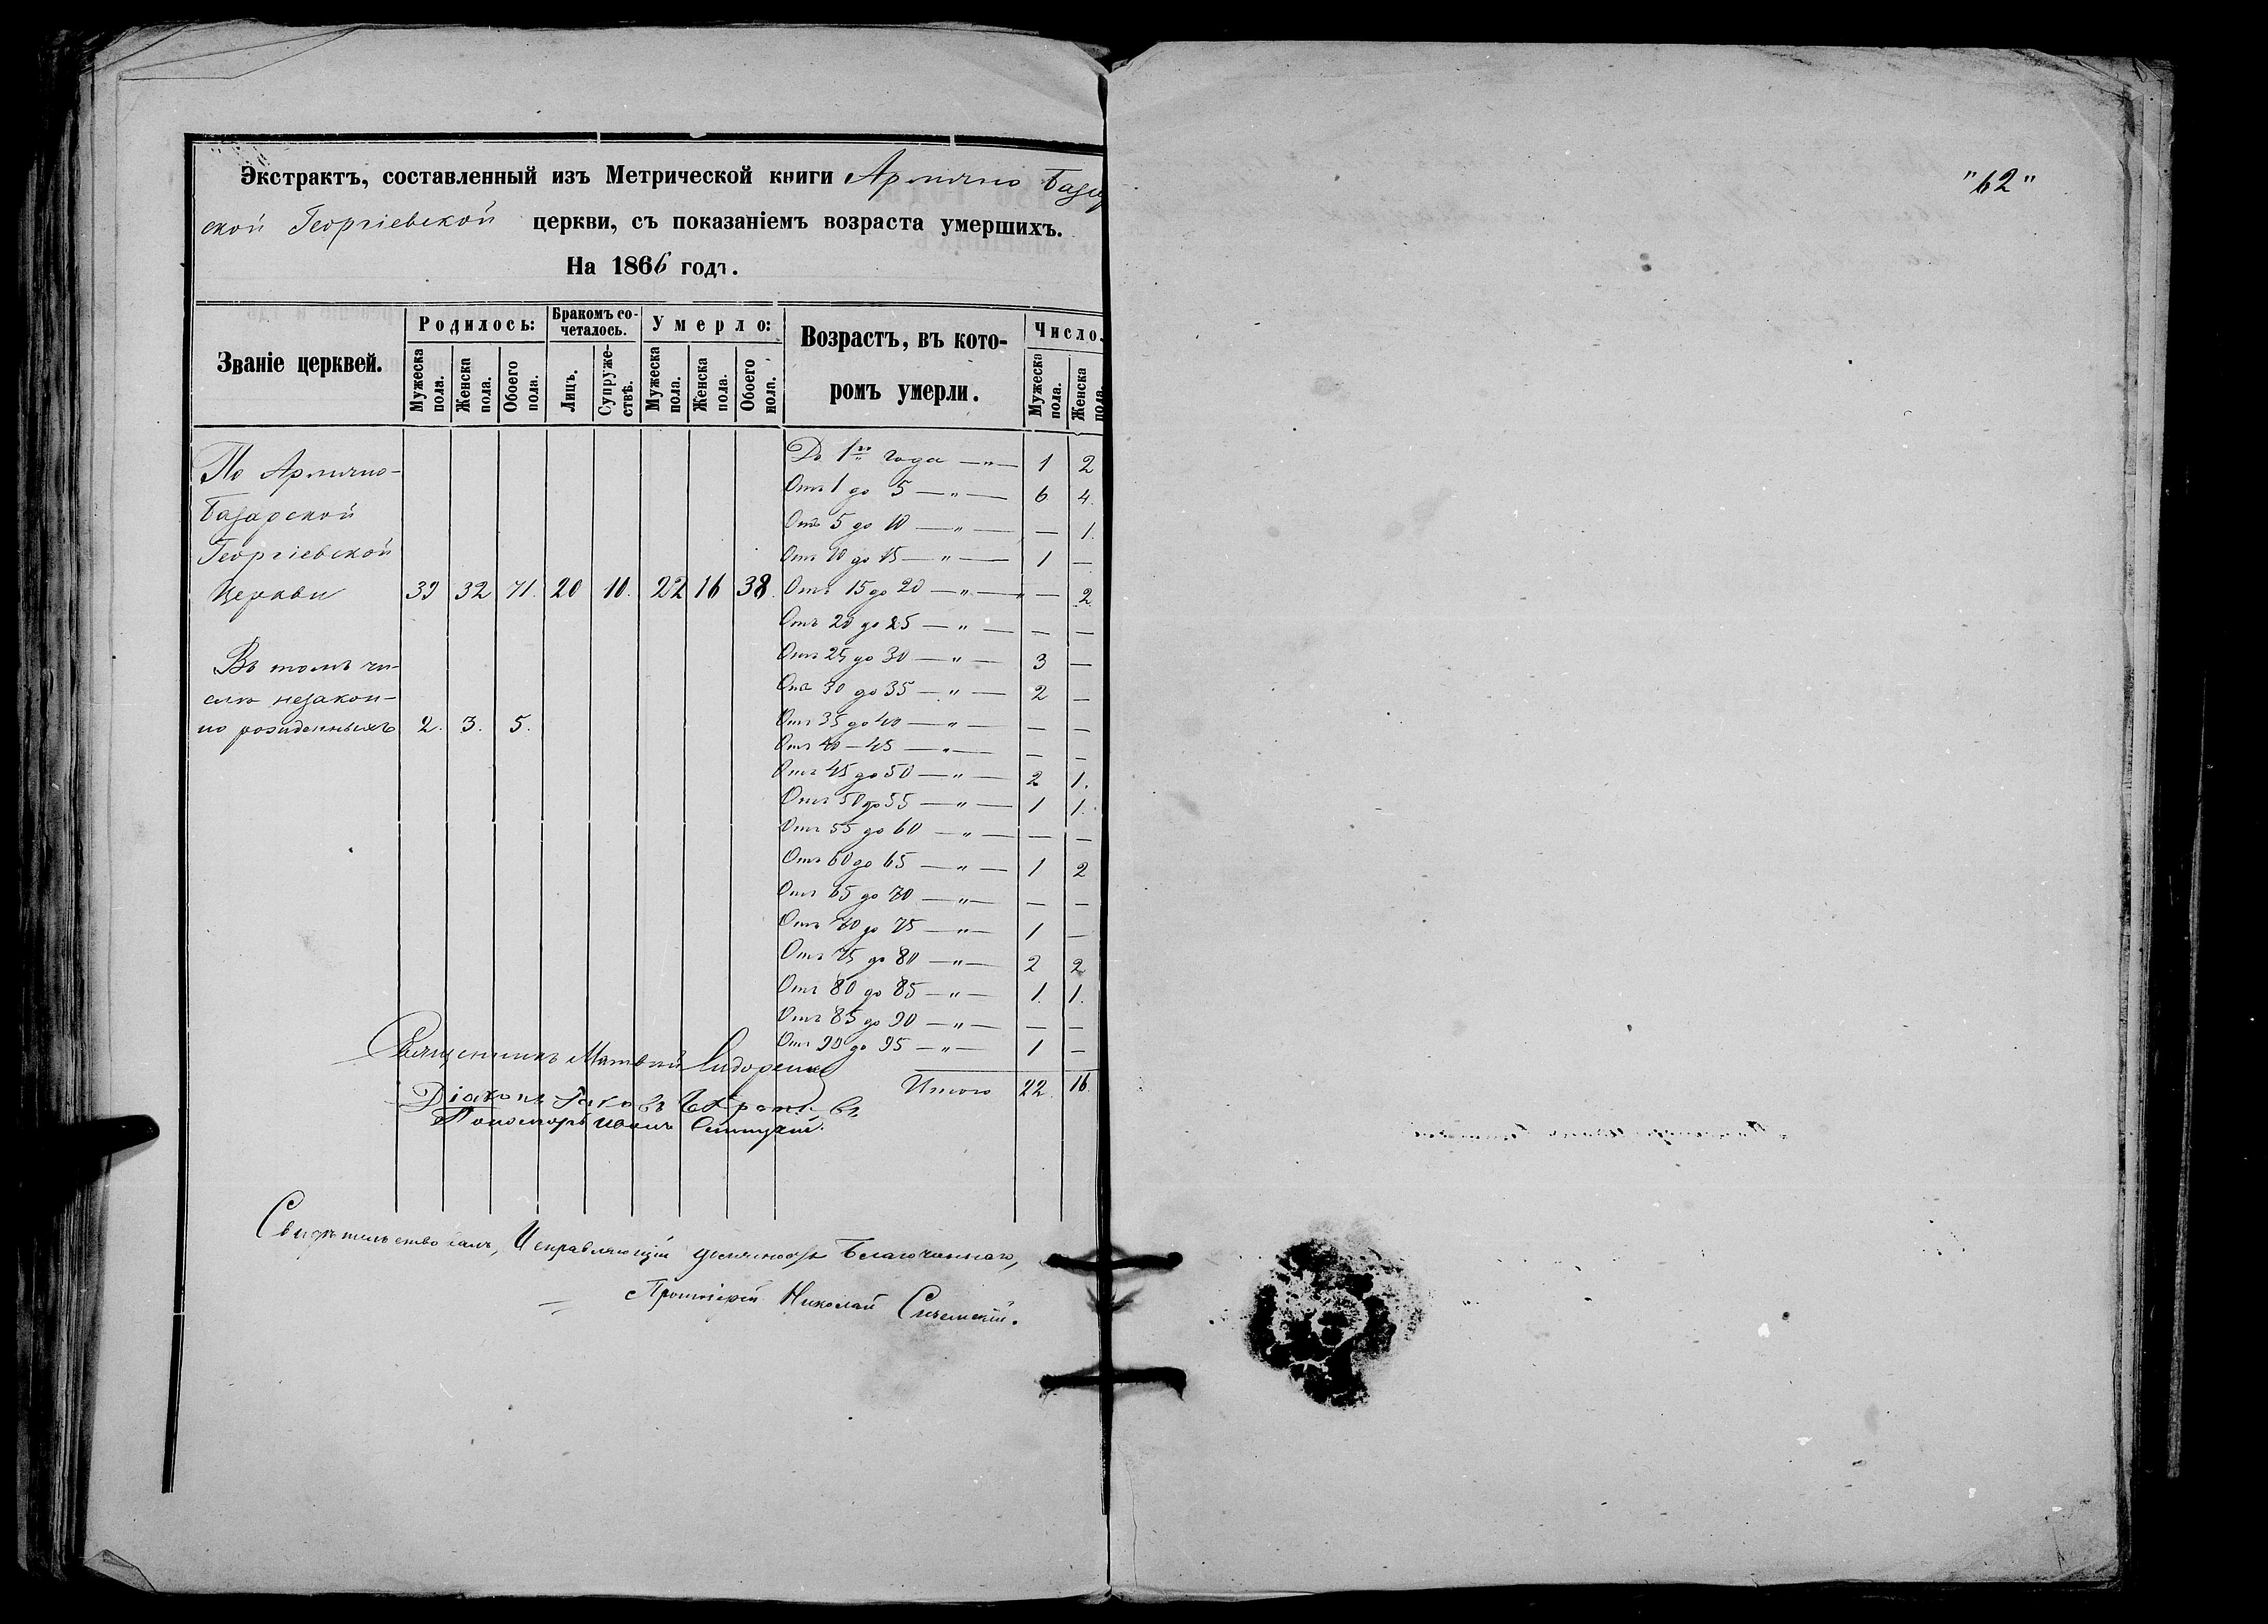 Экстрактъ, составленный изъ Метрической книги Армяно Базар
ской Георгіевской церкви, съ показаніемъ возраста умершихъ.
На 1866 годъ.
Званіе церквей. Родилось: Бракомъ со- четалось. Умерло: Возрастъ, въ кото- ромъ умерли. Число.
Мужеска пола. Женска пола. Обоего пола. Лицъ. Супруже- ствъ. Мужеска пола. Женска пола. Обоего пола. Мужеска пола. Женска пола.
По Армяно-
Базарской
Георгіевской
Церкви 39 32 71. 20 10. 22 16 38.
Въ томъ чи-
слѣ незакон-
но рожденныхъ 2. 3. 5.
До 1го года —"— 1 2
Отъ 1 до 5 —"— 6 4.
Отъ 5 до 10 —"— — 1.
Отъ 10 до 15 —"— 1 —
Отъ 15 до 20 —"— — 2
Отъ 20 до 25 —"— — —
Отъ 25 до 30 —"— 3 —
Отъ 30 до 35 —"— 2 —
Отъ 35 до 40 —"— — —
Отъ 40 — 45 —"— — —
Отъ 45 до 50 —"— 2 1.
Отъ 50 до 55 —"— 1 1.
Отъ 55 до 60 —"— — —
Отъ 60 до 65 —"— 1 2
Отъ 65 до 70 —"— — —
Отъ 70 до 75 —"— 1 —
Отъ 75 до 80 —"— 2 2
Отъ 80 до 85 —"— 1. 1.
Отъ 85 до 90 —"— — —
Отъ 90 до 95 —"— 1 —
Итого 22. 16.
Священникъ Матвѣй Сидоренко
Діаконъ Іаковъ
Пономарь Иванъ
Свидѣтельствовалъ, Исправляющій должность Благочиннаго,
Протоіерей Николай
"62"